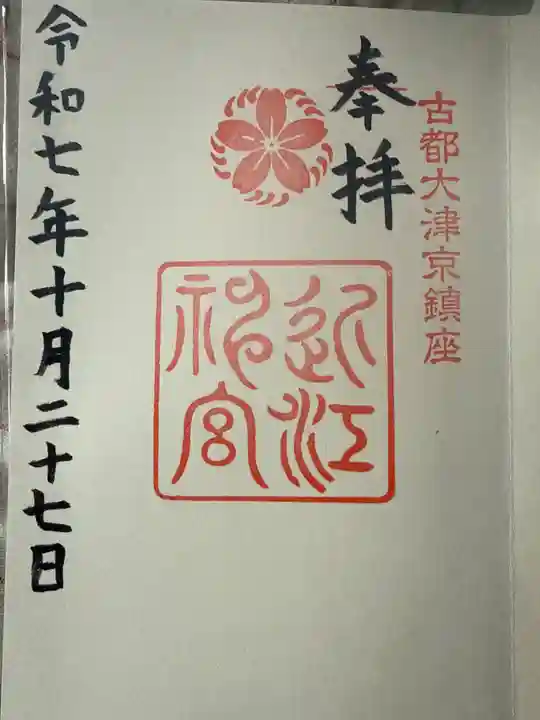 古都大津京鎮座
奉拝
近江
神宮
令和七年十月二十七日